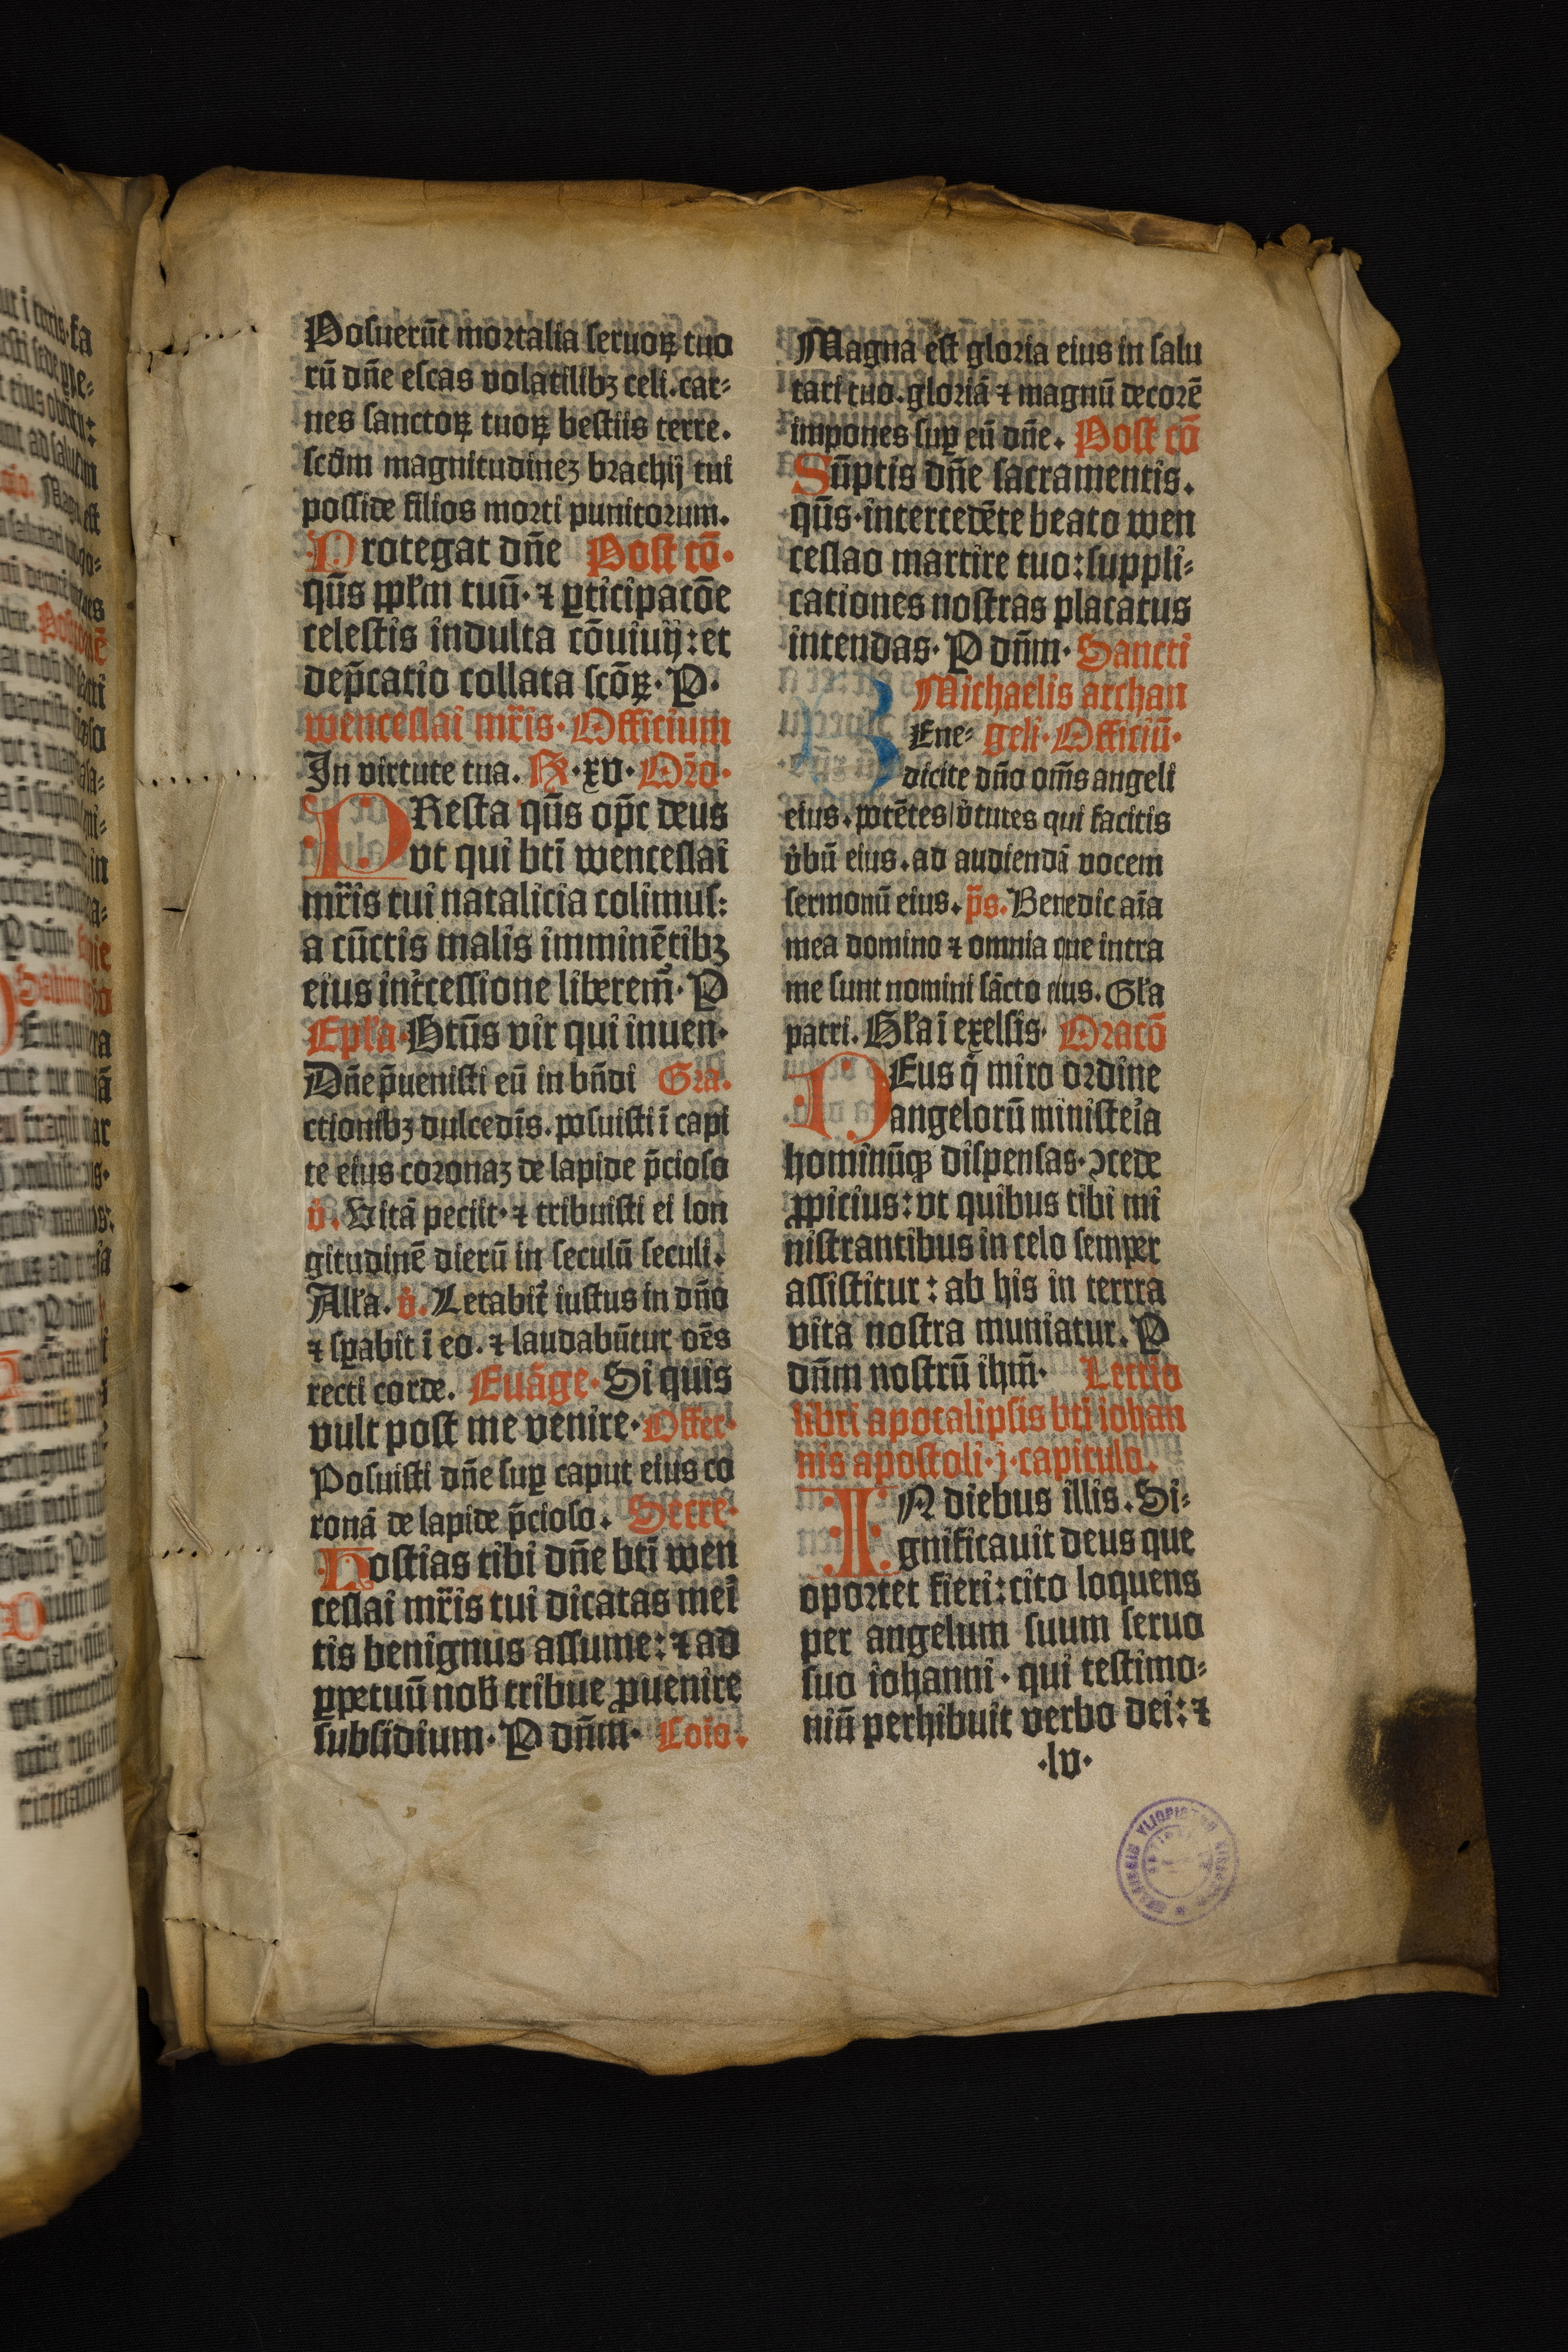 Posuerūt mortalia seruoꝝ tuo
rū dn̄e escas volatilibꝫ celi. car-
nes sanctoꝝ tuoꝝ bestiis terre.
scd̄m magnitudineꝫ brachij tui
posside filios morti punitorum.
Protegat dn̄e Post cō·
qūs pp̄lm tuū· ⁊ ꝑticipatōe
celestis indulta cōuiuij: et
dep̄catio collata scōꝝ· P·
wenceslai mr̄is· Officium
In virtute tua. Rx ·xv· Or̄o·
PResta qūs op̄c deus
vt qui bt̄i wenceslai
mr̄is tui natalicia colimus:
a cūctis malis imminētibꝫ
eius int̄cessione liberem̄· P
Ep̄la· Btūs vir qui inuen·
Dn̄e p̄uenisti eū in bn̄di Gra.
ctionibꝫ dulcedīs. posuisti ī capi
te eius coronaꝫ de lapide p̄cioso
v̄. Vitā peciit· ⁊ tribuisti ei lon
gitudinē dierū in seculū seculi.
All'a. v̄. Letabit̄ iustus in dn̄o
⁊ sꝑabit ī eo. ⁊ laudabūtur oēs
recti corde. Euāge· Si quis
vult post me venire· Offer·
Posuisti dn̄e suꝑ caput eius co
ronā de lapide p̄cioso. Secre·
Hostias tibi dn̄e bt̄i wen
ceslai mr̄is tui dicatas meī
tis benignus assume: ⁊ ad
ꝑpetuū nob̄ tribue ꝓuenire
subsidium· P dn̄m· Coīo.
Magna est gloria eius in salu
tari tuo. gloriā ⁊ magnū decorē
impones suꝑ eū dn̄e. Post cō
Sūptis dn̄e sacramentis.
qūs· intercedēte beato wen
ceslao martire tuo: suppli-
cationes nostras placatus
intendas· P dn̄m· Sancti
Michaelis archan
BEne- geli· Officiū·
dicite dn̄o om̄s angeli
eius. potētes v̄tutes qui facitis
v̄bū eius. ad audiendā vocem
sermonū eius. p̄s. Benedic aīa
mea domino ⁊ omnia que intra
me sunt nomini sācto eius. Gl'a
patri. Gl'a ī exelsis· Oratō
DEus q̄ miro ordine
angelorū ministeīa
hominūqꝫ dispensas· ꝯcede
ꝓpicius: vt quibus tibi mi
nistrantibus in celo semper
assistitur: ab his in terrra
vita nostra muniatur. P
dn̄m nostrū ihm̄· Lectio
libri apocalipsis bt̄i iohan
nis apostoli· j· capitulo.
IN diebus illis. Si-
gnificauit deus que
oportet fieri: cito loquens
per angelum suum seruo
suo iohanni· qui testimo-
niū perhibuit verbo dei: ⁊
·lv·